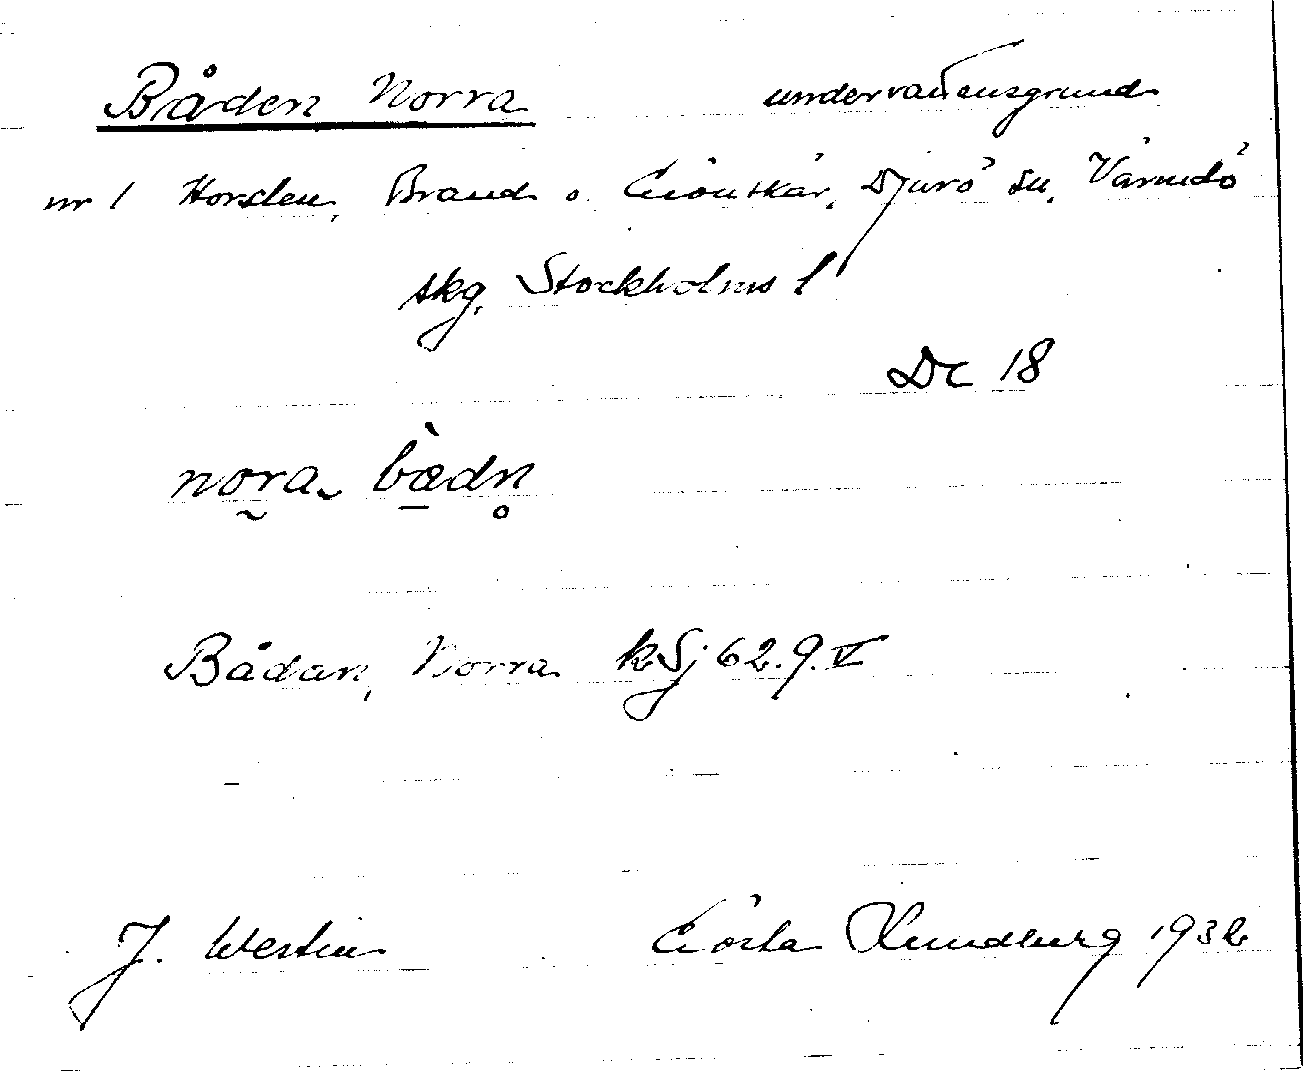 Båden Norra undervattensgrund
nr 1 Horsten, Brand o. Grönskär, Djurö sn, Värmdö
skg, Stockholms l
Dc 18
nora bædn̥
Bådan, Norra kSj 62.9.V
J. Westin Gösta 1932